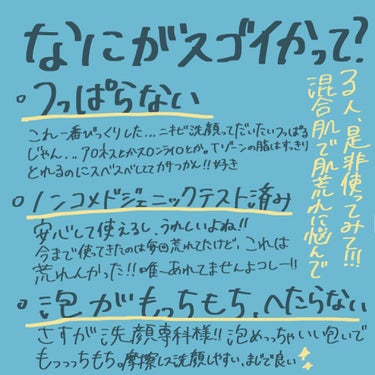 なにがスゴイかって?
○つっぱらない
これ一番びっくりした...ニキビ洗顔ってだいたいつっぱる
じゃん...アロネスとかスロンライロとか。Tゾーンの脂はすっきり
とれるのにスベスベしててカサつかん!!好き
○ノンコメドジェニックテスト済み
安心して使えるし、うれしいよね!!
今まで使ってきたのは毎回荒れてたけど、これは
荒れんかった!!唯一あれてませんよコレー!!
○泡がもっちもち、へたらない
さすが洗顔専科様!!泡めっちゃいい泡いで
もっっっちもち。摩擦レス洗顔しやすい、まじで良い
混合肌で肌荒れに悩んで
る人、是非使ってみて!!!